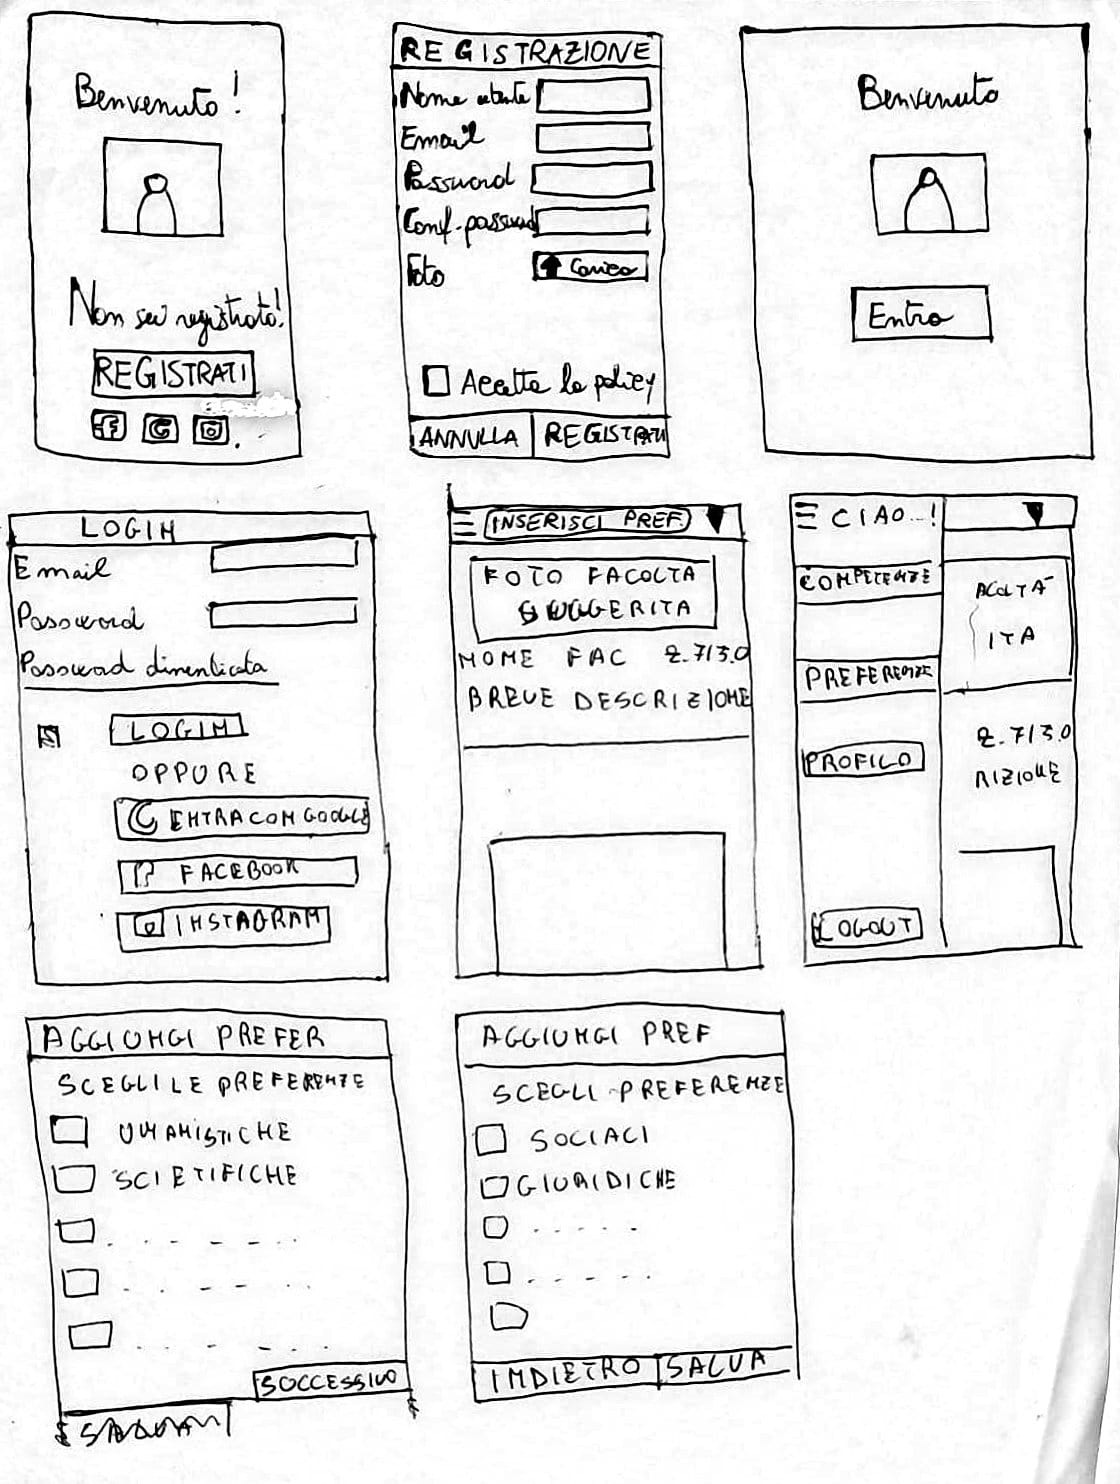 Benvenuto!
Non sei registrato!
REGISTRATI
REGISTRAZIONE
Nome utente
Email
Password
Conf. password
Foto
Carica
Accetta la policy
ANNULLA REGISTRATI
Benvenuto
Entra
LOGIN
Email
Password
Password dimenticata
LOGIN
OPPURE
G ENTRA CON GOOGLE
FACEBOOK
INSTAGRAM
INSERISCI PREF.
FOTO FACOLTA
SUGGERITA
NOME FAC 2.7/3.0
BREVE DESCRIZIONE
CIAO...!
COMPETENZE
PREFERENZE
PROFILO
LOGOUT
ACOLTA'
ITA
2.7/3.0
RIZIONE
AGGIUNGI PREFER
SCEGLI LE PREFERENZE
UMANISTICHE
SCIETIFICHE
SOCCESSIVO
AGGIUNGI PREF
SCEGLI PREFERENZE
SOCIACI
GIURIDICHE
INDIETRO SALVA